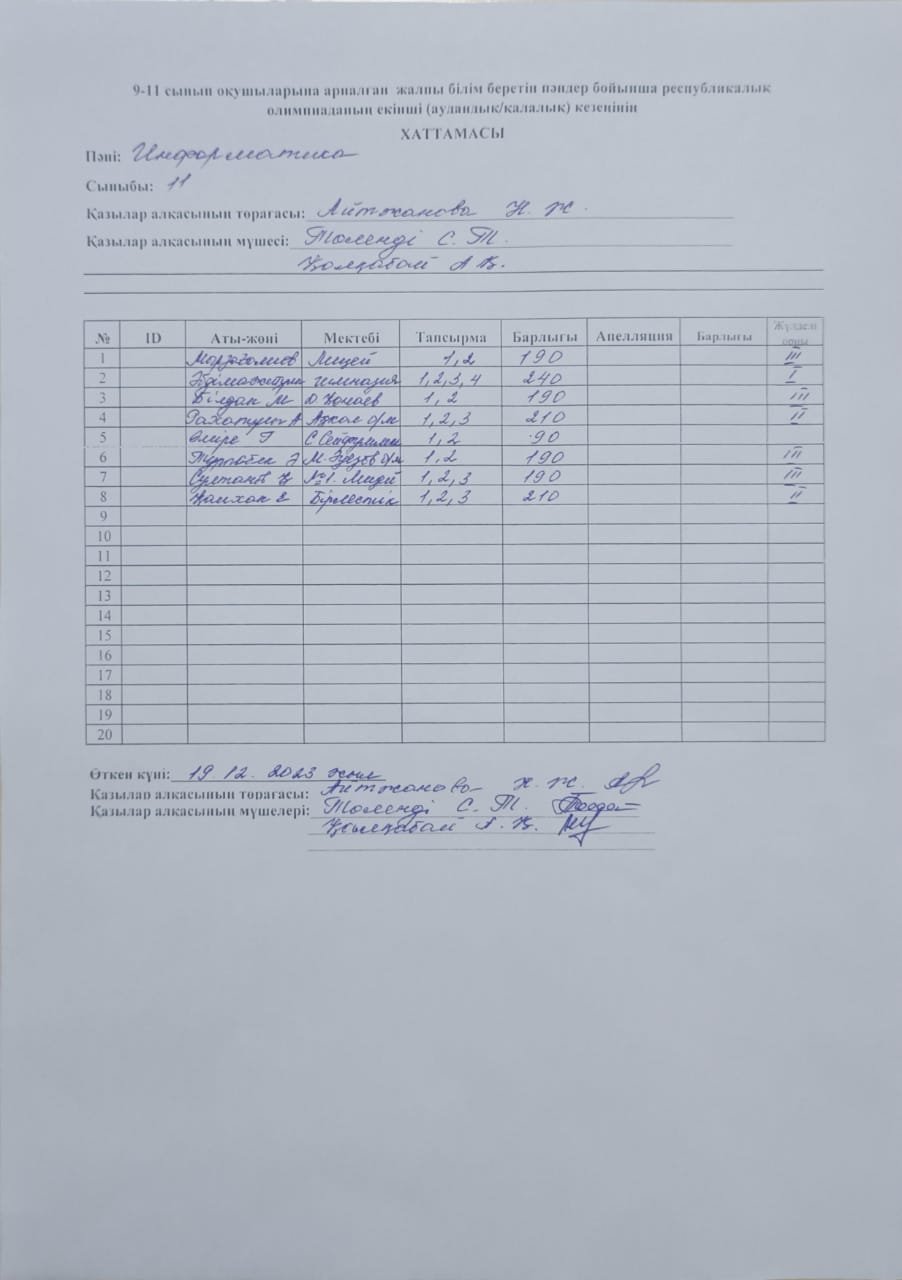 9-11 сынып оқушыларына арналған жалпы білім беретін пәндер бойынша республикалық
олимпиаданың екінші (аудандық/қалалық) кезеңінің
ХАТТАМАСЫ
Пәні: Информатика
Сыныбы: 11
Қазылар алқасының төрағасы: Айтжанова Н. Ж.
Қазылар алқасының мүшесі: Төленді С. Т.
Қалқабай А Қ.
№ ID Аты-жөні Мектебі Тапсырма Барлығы Апелляция Барлығы Жүлделі орны
1 Лицей 1,2 190 III
2 гимназия 1,2,3,4 240 I
3 Білдан М Д Қонаев 1,2 190 III
4 А 1,2,3 210 II
5 Әміре Г 1,2 90
6 Ә М. Әуезов 1,2 190 III
7 Султанов Қ №1. Лицей 1,2,3 190 III
8 Е Бірлестік 1,2,3 210 II
9
10
11
12
13
14
15
16
17
18
19
20
Өткен күні: 19. 12. 2023 жыл
Қазылар алқасының төрағасы: Айтжанова Н. Ж.
Қазылар алқасының мүшелері: Төленді С. Т.
Қалқабай А. Қ.